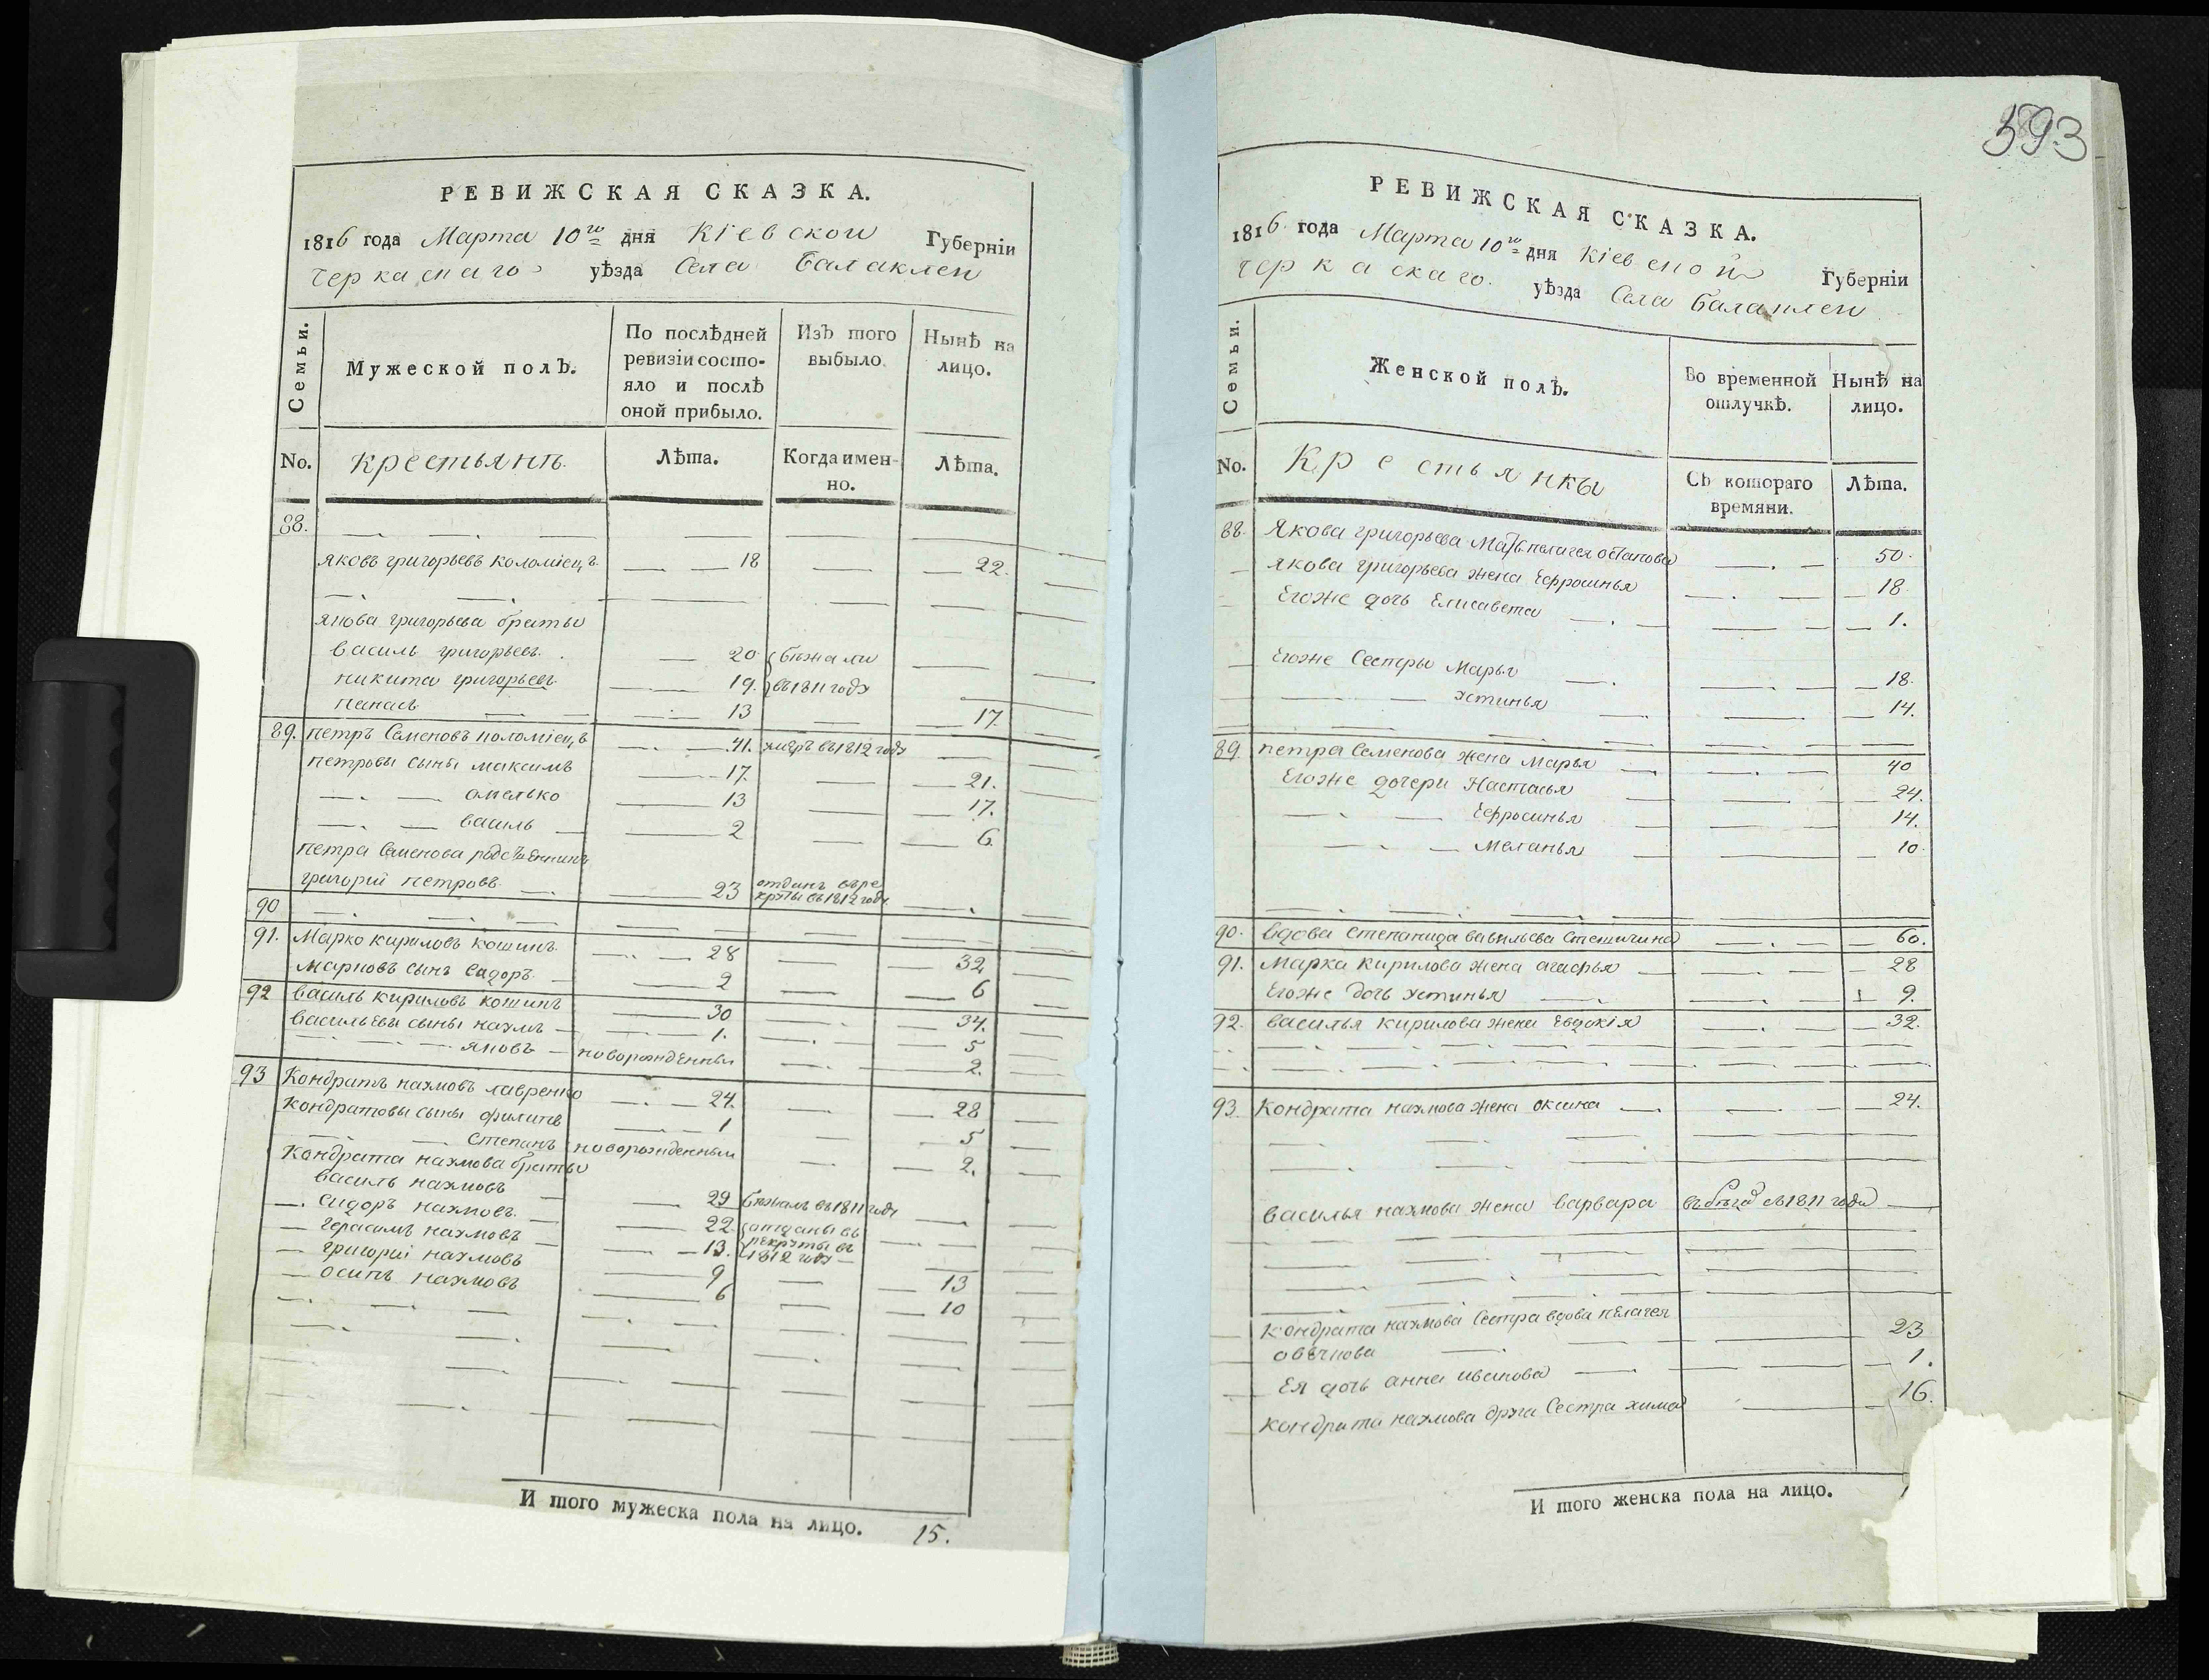 593
РЕВИЖСКАЯ СКАЗКА.
1816 года Марта 10го дня Кіевской Губерніи
Черкаскаго уѣзда Села Балаклеи
Семьи.
Мужеской полЪ.
По послѣдней ревизіи состояло и послѣ оной прибыло.
ИзЪ того выбыло.
Нынѣ на лицо.
No.
крестьянъ
Лѣта.
Когда именно.
Лѣта.
88.
яковъ григорьевъ коломіецъ 18 22.
якова григорьева братья
василь григорьевъ 20 бежали
никита григорьевъ 19. въ 1811 году
панасъ 13 17.
89. петръ Семеновъ коломіецъ 41. умеръ въ 1812 году
петровы сыны максимъ 17. 21.
омелько 13 17.
василь 2 6.
петра Семенова родственникъ
григорій петровъ 23 отданъ въ рекруты въ 1812 году
90
91. Марко кириловъ кошинъ 28 32
Марковъ сынъ Сидоръ 2 6
92 василь кириловъ кошинъ 30 34.
васильевы сыны наумъ 1. 5
яковъ новорожденный 2.
93 Кондратъ наумовъ лавренко 24. 28
Кондратовы сыны филипъ 1 5
Степанъ новорожденный 2.
Кондрата наумова братья
василь наумовъ 29 бежалъ въ 1811 году
Сидоръ наумовъ 22 отданы въ
герасимъ наумовъ 13. рекруты въ 1812 году
григорій наумовъ 9 13
осипъ наумовъ 6 10
И того мужеска пола на лицо. 15.
РЕВИЖСКАЯ СКАЗКА.
1816 года Марта 10го дня Кіевской Губерніи
Черкаскаго уѣзда Села Балаклеи
Семьи.
Женской полЪ.
Во временной отлучкѣ.
Нынѣ на лицо.
No.
Крестьянки
СЪ котораго времяни.
Лѣта.
88. Якова григорьева Мать пелагея 50.
якова григорьева жена Ефросинья 18.
Егоже дочь Елисавета 1.
Егоже Сестры Марья 18.
устинья 14.
89. петра Семенова жена Марья 40
Егоже дочери Настасья 24.
Ефросинья 14.
Меланья 10.
90. вдова степанида васильева 60.
91. Марка кирилова жена агафья 28
Егоже дочь устинья 9.
92. василья кирилова жена Евдокія 32.
93. Кондрата наумова жена оксина 24.
василья наумова жена варвара въ бегах съ 1811 года
кондрата наумова Сестра вдова пелагея
23
Ея дочь анна иванова 1.
кондрата наумова друга Сестра хима 16.
И того женска пола на лицо.